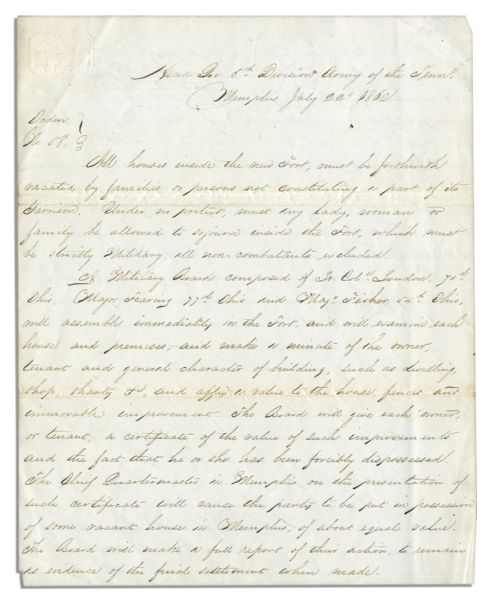 Head Qrs 5th Division Army of the Tenn.
Memphis July 22d 1862
Orders
No 58.
All houses inside the new Fort, must be forthwith
vacated by families, or persons not constituting a part of its
Garrison. Under no pretext, must any lady, woman or
family be allowed to sojourn inside the Fort, which must
be strictly Military, all non-combatants excluded.
A Military Board composed of Lt. Col. Loudon, 70th
Ohio, Major Fearing 77th Ohio and Maj. Fisher 54th Ohio,
will assemble immediately in the Fort, and will examine each
house and premises, and make a minute of the owner,
tenant and general character of building, such as dwelling
shop, shanty &c, and affix a value to the house, fences and
immovable improvement. The Board will give each owner,
or tenant, a certificate of the value of such improvements
and the fact that he or she has been forcibly dispossessed.
The Chief Quartermaster in Memphis, on the presentation of
such certificate will cause the party to be put in possession
of some vacant house in Memphis, of about equal value.
The Board will make a full report of their action, to remain
as evidence of the final settlement when made.